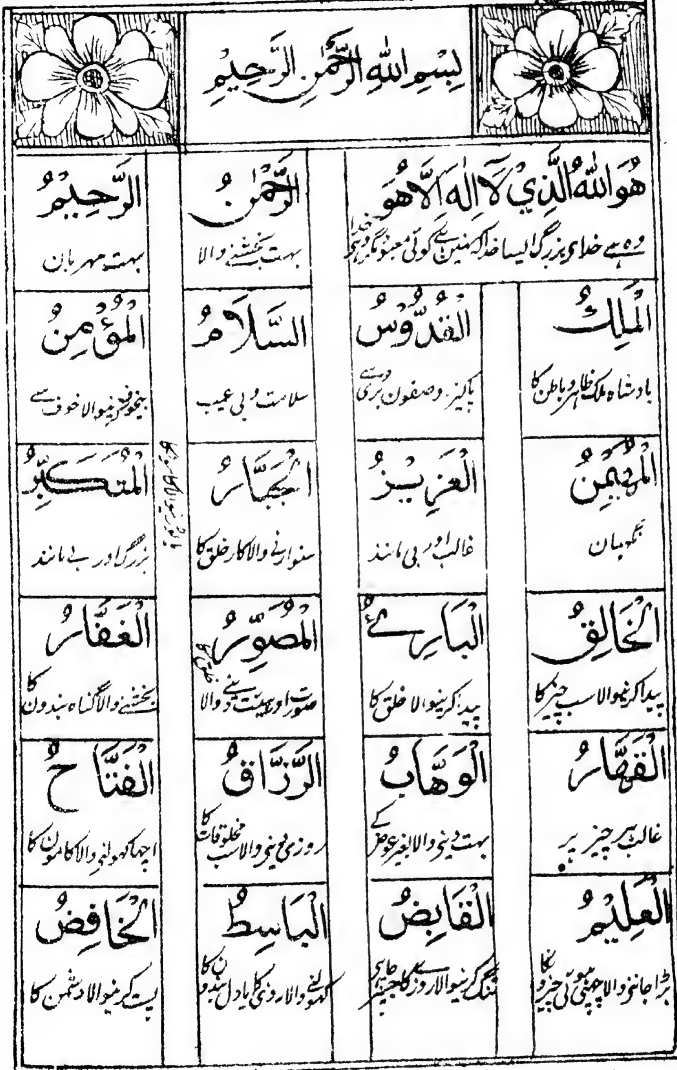 بِسْمِ اللهِ الرَّحْمٰنِ الرَّحِيْمِ
هُوَ اللهُ الَّذِيْ لَآ اِلٰهَ اِلَّا هُوَ
وہ ہے خدای بزرگ ایسا خدا کہ نہین ہے کوئی معبود مگر وہی خدا
الرَّحْمٰنُ
بہت بخشنے والا
الرَّحِيْمُ
بہت مہربان
الْمَلِكُ
بادشاہ ملک ظاہر و باطن کا
الْقُدُّوْسُ
پاکیزہ وصفون بری سے
السَّلَامُ
سلامت و بی عیب
الْمُؤْمِنُ
بیخوف کرنیوالا خوف سے
الْمُهَيْمِنُ
نگہبان
الْعَزِيْزُ
غالب اور بی مانند
الْجَبَّارُ
سنوارنے والا کار خلق کا
الْمُتَكَبِّرُ
بزرگ اور بے مانند
الْخَالِقُ
پیدا کرنیوالا سب چیز کا
الْبَارِئُ
پیدا کرنیوالا خلق کا
الْمُصَوِّرُ
صورت اور ہیئت دینے والا خلق کا
الْغَفَّارُ
بخشنے والا گناہ بندون کا
الْقَهَّارُ
غالب ہر چیز پر
الْوَهَّابُ
بہت دینے والا بغیر عوض کے
الرَّزَّاقُ
روزی دینے والا سب مخلوقات کا
الْفَتَّاحُ
اچھا کھولنے والا کامون کا
الْعَلِيْمُ
بڑا جاننے والا چھپی ہوئی چیزو نکا
الْقَابِضُ
تنگ کرنیوالا روزی کا جسپر چاہے
الْبَاسِطُ
کھولنے والا روزی کا یا دل بندون کا
الْخَافِضُ
پست کرنیوالا دشمن کا